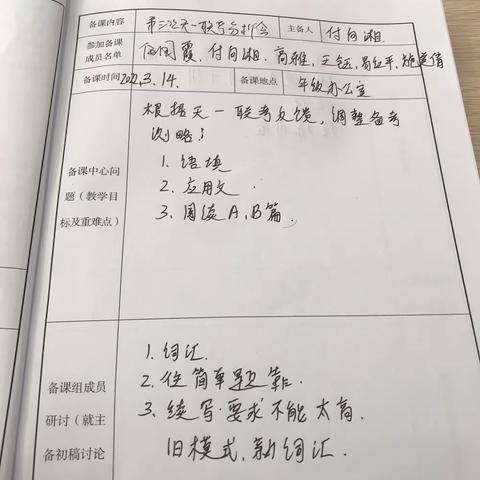 备课内容 第三次天一联考分析会 主备人 付向湘.
参加备课
成员名单 伍国霞、付向湘、高雅、王钰、易红平、施
备课时间 2022.3.14. 备课地点 年级办公室
根据天一联考反馈,调整备考
策略:
1. 语填
2. 应用文.
3. 阅读A、B篇.
备课中心问
题(教学目
标及重难点)
1. 词汇.
2. 往简单题靠.
3. 续写.要求不能太高.
旧模式,新词汇.
备课组成员
研讨(就主
备初稿讨论